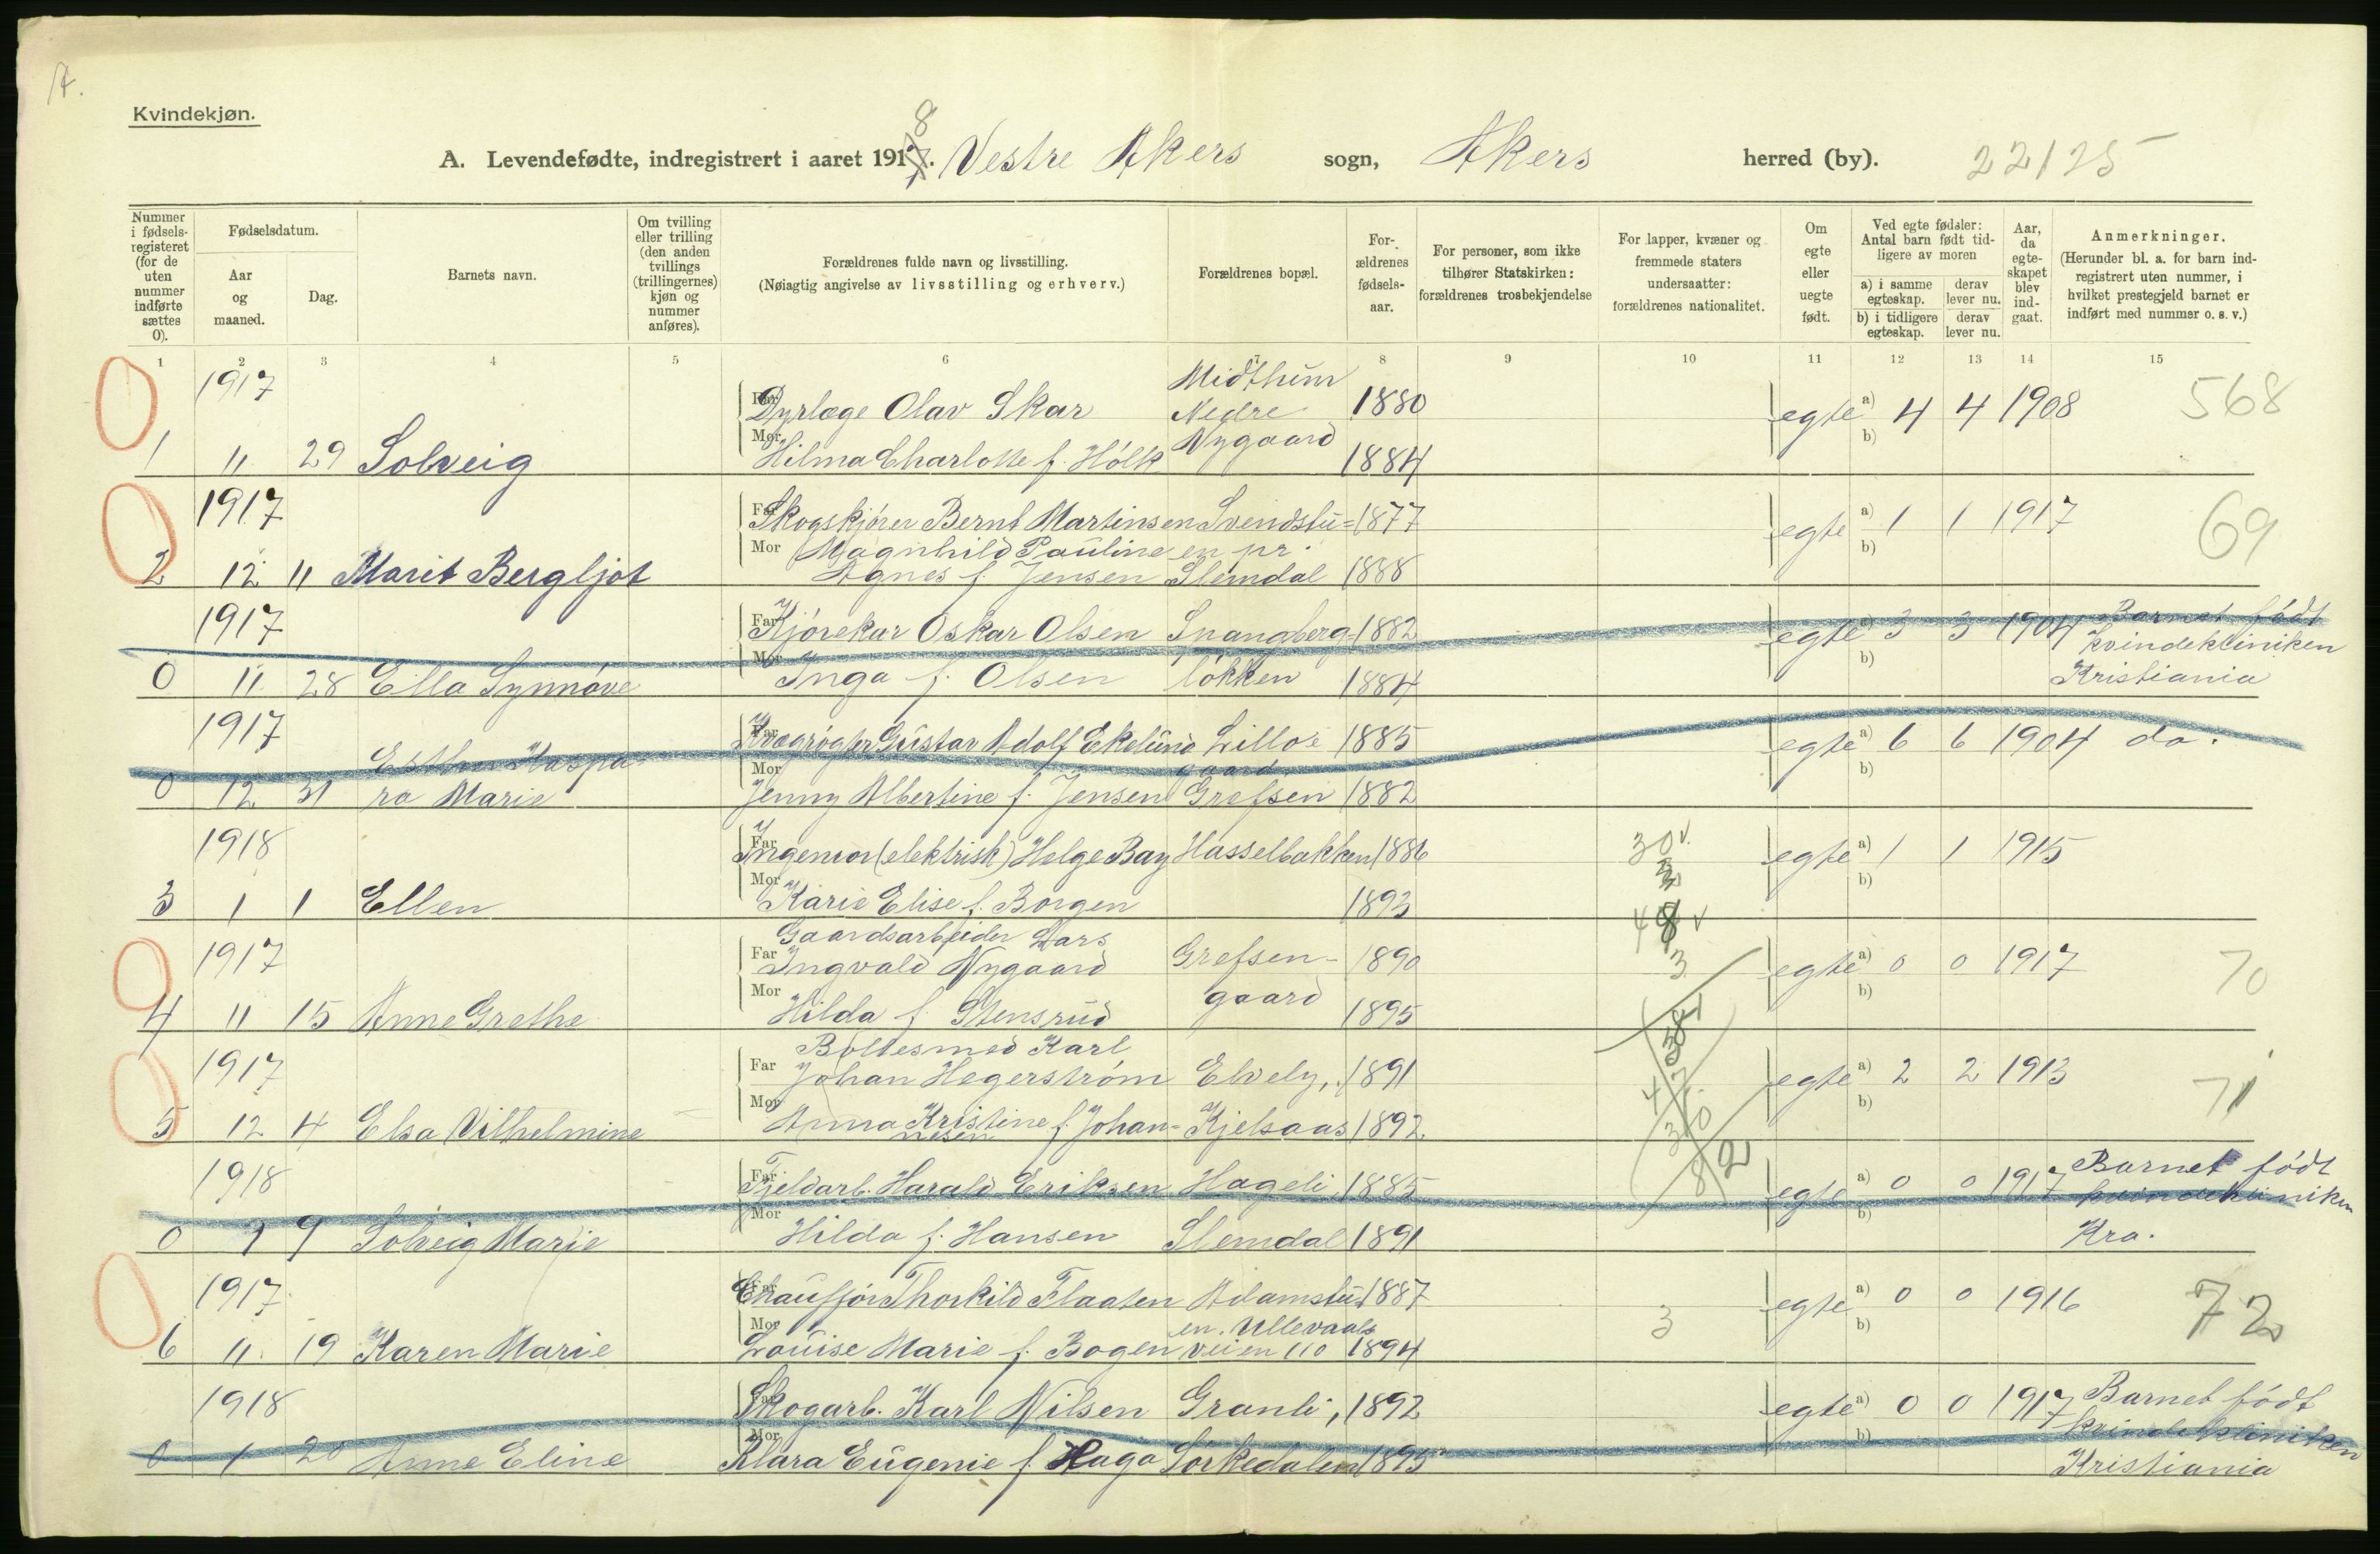 A.
Kvindekjøn.
A. Levendefødte, indregistrert i aaret 1918. Vestre Akers sogn, Akers herred (by). 22125
Nummer i fødselsregisteret (for de uten nummer indførte sættes 0).
Fødselsdatum.
Aar og maaned.
Dag.
Barnets navn.
Om tvilling eller trilling (den anden tvillings (trillingernes) kjøn og nummer anføres).
Forældrenes fulde navn og livsstilling.
(Nøiagtig angivelse av livsstilling og erhverv.)
Forældrenes bopæl.
Forældrenes fødselsaar.
For personer, som ikke tilhører Statskirken: forældrenes trosbekjendelse
For lapper, kvæner og fremmede staters undersaatter: forældrenes nationalitet.
Om egte eller uegte født.
Ved egte fødsler: Antal barn født tidligere av moren
a) i samme egteskap. derav lever nu.
b) i tidligere egteskap. derav lever nu.
Aar, da egteskapet blev indgaat.
Anmerkninger.
(Herunder bl. a. for barn indregistrert uten nummer, i hvilket prestegjeld barnet er indført med nummer o. s. v.)
1 2 3 4 5 6 7 8 9 10 11 12 13 14 15
1917 Midthun
Far Dyrlæge Olav Skar Nedre 1880 egte a) 4 4 1908 568
1 11 29 Solveig Mor Hilma Charlotte f. Hölk Nygaard 1884 b)
1917 Far Skogskjører Bernt Martinsen Svendstu= 1877 egte a) 1 1 1917 69
Mor Magnhild Pauline en pr. b)
2 12 11 Marit Bergljot Agnes f. Jensen Slemdal 1888
1917 Far Kjørekar Oskar Olsen Snangberg= 1882 egte a) 3 3 1904 Barnet født
Mor b) kvindekliniken
0 11 28 Ella Synnöve Inga f. Olsen løkken 1884 Kristiania
1917 Far Kvægrøgter Gustav Adolf Ekelund Lilloe 1885 egte a) 6 6 1904 do.
Esther Kaspa= Mor gaard b)
0 12 31 ra Marie Jenny Albertine f. Jensen Grefsen 1882
1918 Far Ingeniør (elektrisk) Helge Bay Hasselbakken 1886 30 egte a) 1 1 1915
3 1 1 Ellen Mor Karie Elise f. Borgen 1893 b)
Gaardsarbeider Lars
1917 Far Ingvald Nygaard Grefsen- 1890 3 egte a) 0 0 1917 70
4 11 15 Anne Grethe Mor Hilda f. Stensrud gaard 1895 b)
Boltesmed Karl
1917 Far Johan Hegerstrøm Elvely, 1891 egte a) 2 2 1913 71
5 12 4 Elsa Vilhelmine Mor Anna Kristine f. Johan- Kjelsaas 1892 b)
nesen
1918 Far Fjeldarb. Harald Eriksen Hageli 1885 egte a) 0 0 1917 Barnet født
Mor b) kvindekliniken
0 1 9 Solveig Marie Hilda f. Hansen Slemdal 1891 Kra.
1917 Far Chauffør Thorkild Flaaten Adamstu- 1887 3 egte a) 0 0 1916 72
Mor en. Ullevaals b)
6 11 19 Karen Marie Louise Marie f. Bogen veien 110 1894
1918 Far Skogarb. Karl Nilsen Granli, 1892 egte a) 0 0 1917 Barnet født
Mor b) kvindekliniken
0 1 20 Anne Eline Klara Eugenie f. Haga Sørkedalen 1895 Kristiania